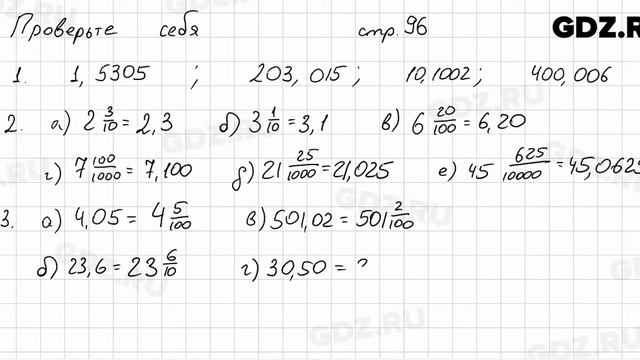 Проверьте себя стр. 96
GDZ.R
1. 1,5305 ; 203,015 ; 10,1002 ; 400,006
2. а) 2 3/10 = 2,3 б) 3 1/10 = 3,1 в) 6 20/100 = 6,20
г) 7 100/1000 = 7,100 д) 21 25/1000 = 21,025 е) 45 625/10000 = 45,0625
3. а) 4,05 = 4 5/100 в) 501,02 = 501 2/100
б) 23,6 = 23 6/10 г) 30,50 = ?